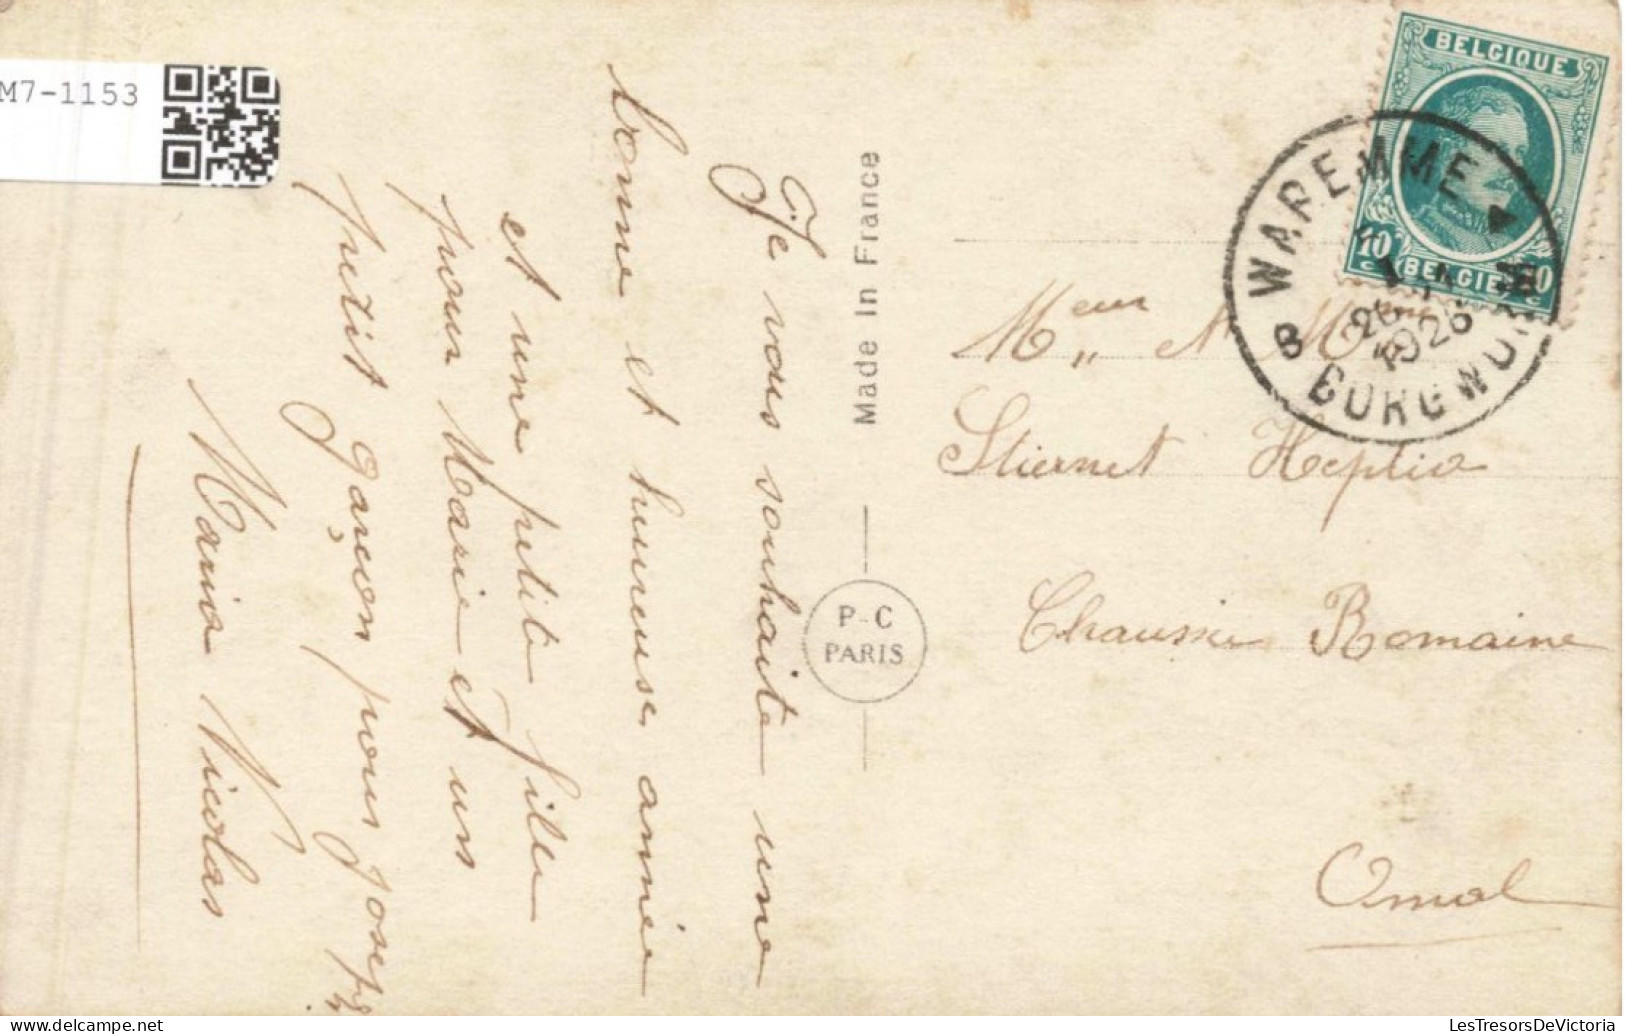 M7-1153
Je vous souhaite une
bonne et heureuse année
et une petite fille
pour Marie et un
petit garçon pour Joseph
Maria Nicolas
Made in France
P-C
PARIS
BELGIQUE
10
BELGIË
WAREMME
BORGWORM
26
1926
Meur et Mme
Stiernet Heptia
Chaussée Romaine
Omal
delcampe.net
LesTresorsDeVictoria